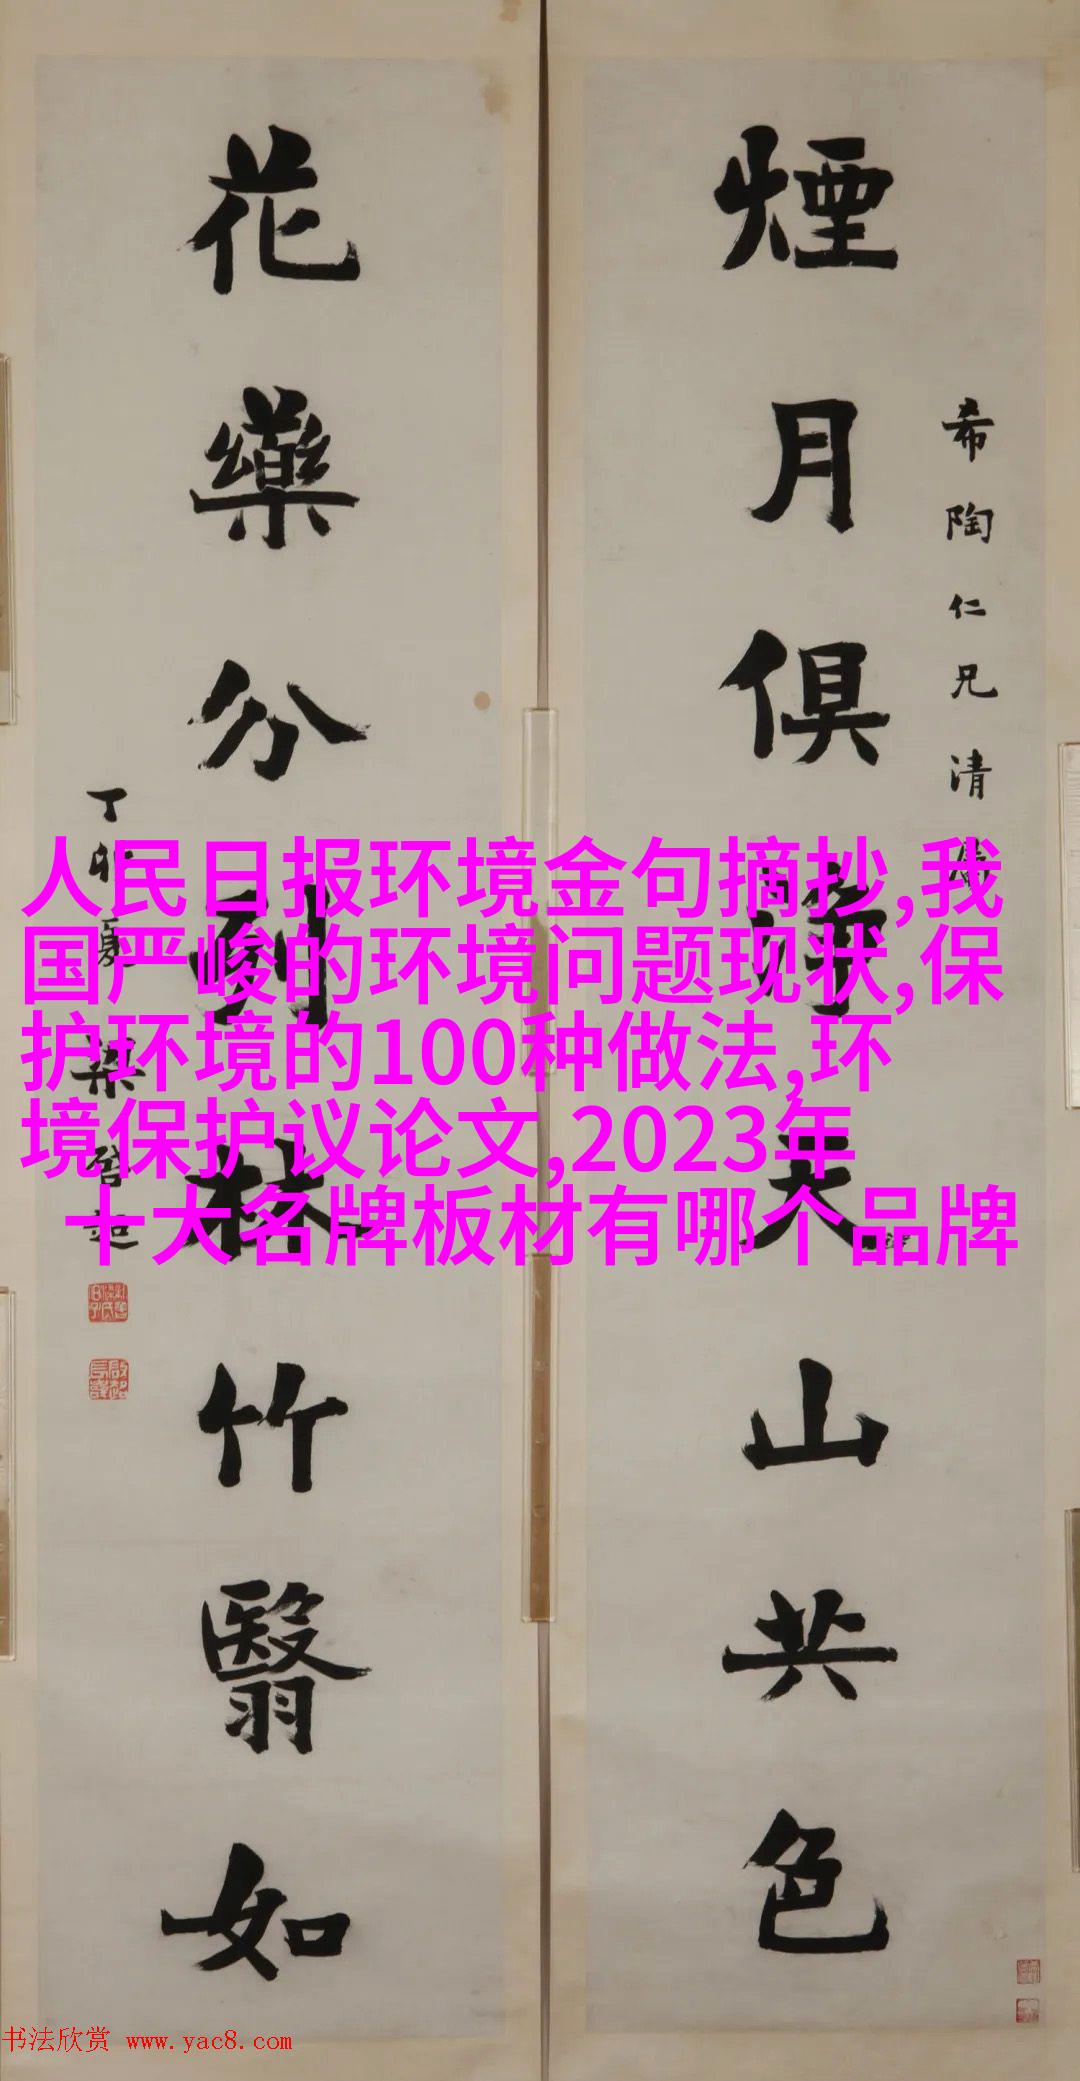 煙月俱
天山共色
希陶仁兄清
花藥分列林竹翳如
丁卯夏梁啓超
人民日报环境金句摘抄,我
国严峻的环境问题现状,保
护环境的100种做法,环
境保护议论文,2023年
十大名牌板材有哪个品牌
书法欣赏 www.yac8.com